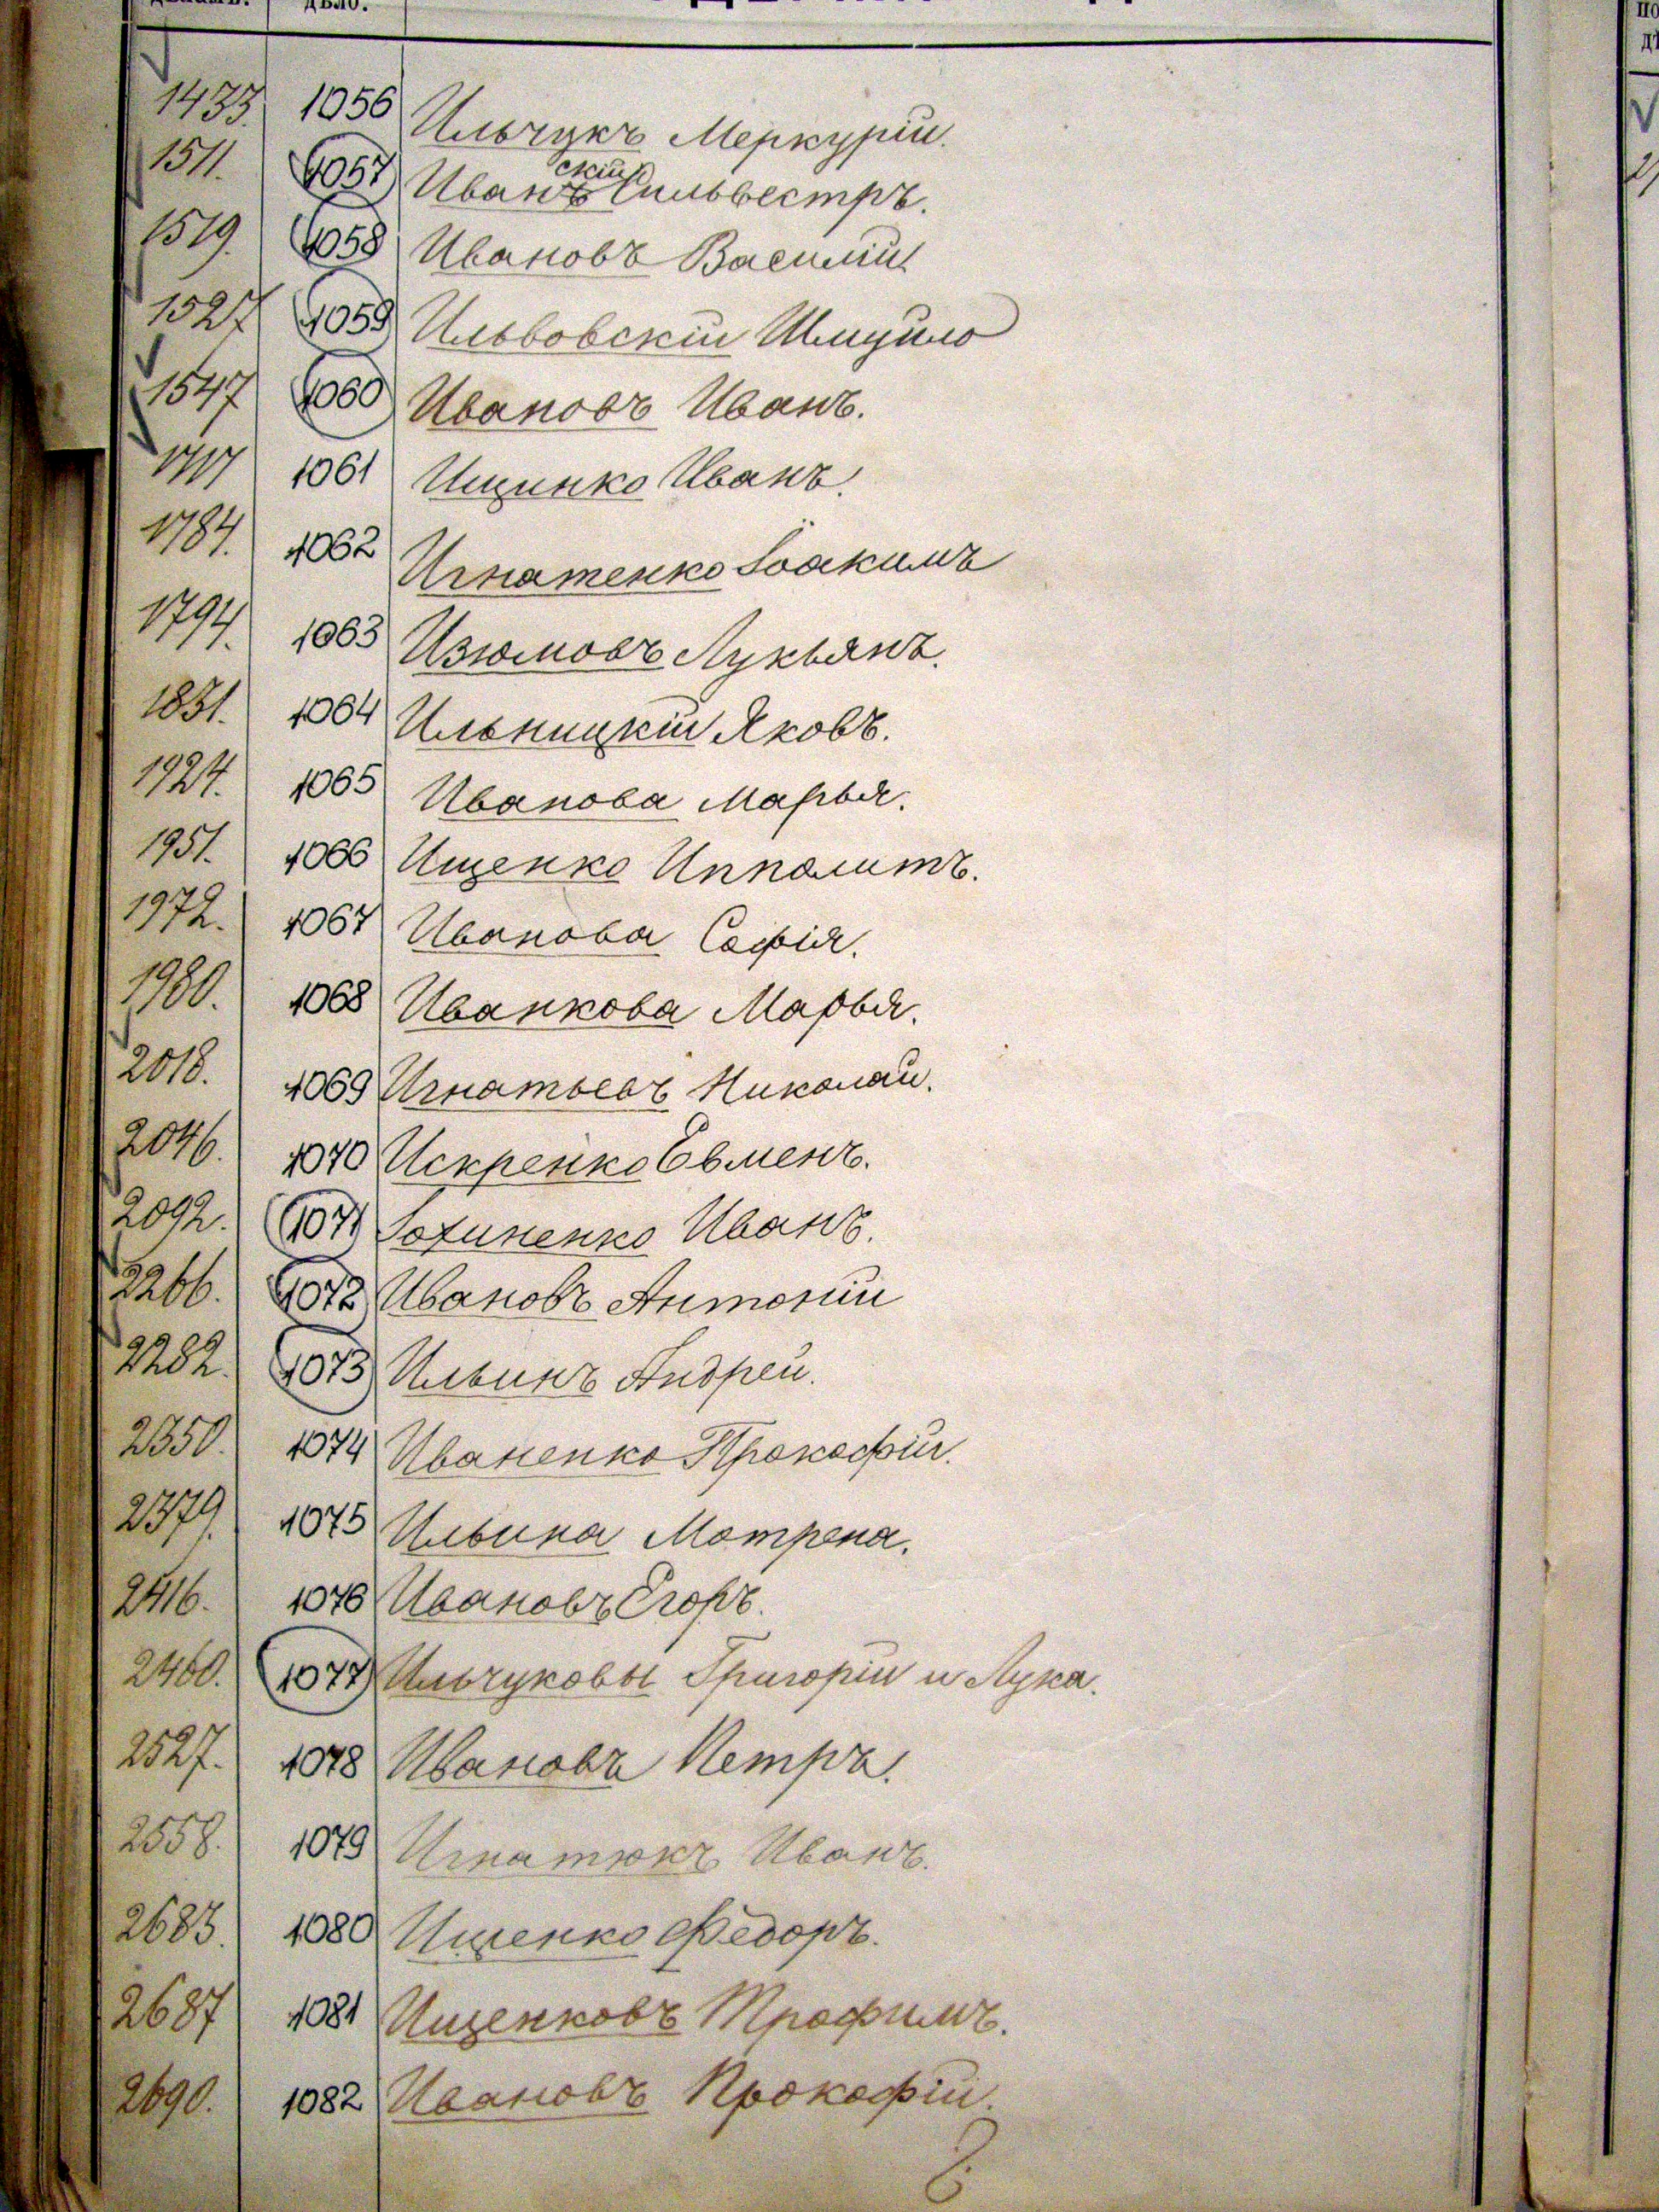 дѣло.
1433. 1056 Ильчукъ Меркурій.
1511. 1057 Иванскій Сильвестръ.
1519. 1058 Ивановъ Василій
1527 1059 Ильвовскій Шмуйло
1547 1060 Ивановъ Иванъ.
1717 1061 Ищинко Иванъ.
1784. 1062 Игнатенко Іоакимъ
1794. 1063 Изюмовъ Лукьянъ.
1831. 1064 Ильницкій Яковъ.
1924. 1065 Иванова Марья.
1951. 1066 Ищенко Ипполитъ.
1972. 1067 Иванова Софія.
1980. 1068 Иванкова Марья.
2018. 1069 Игнатьевъ Николай.
2046. 1070 Искренко Евменъ.
2092. 1071 Іохиненко Иванъ.
2266. 1072 Ивановъ Антоній
2282. 1073 Ильинъ Андрей.
2350. 1074 Иваненко Прокофій.
2379. 1075 Ильина Мотрена.
2416. 1076 Ивановъ Егоръ.
2460. 1077 Ильчуковы Григорій и Лука.
2527. 1078 Ивановъ Петръ.
2558. 1079 Игнатюкъ Иванъ.
2683. 1080 Ищенко Федоръ.
2687 1081 Ищенковъ Трофимъ.
2690. 1082 Ивановъ Прокофій.